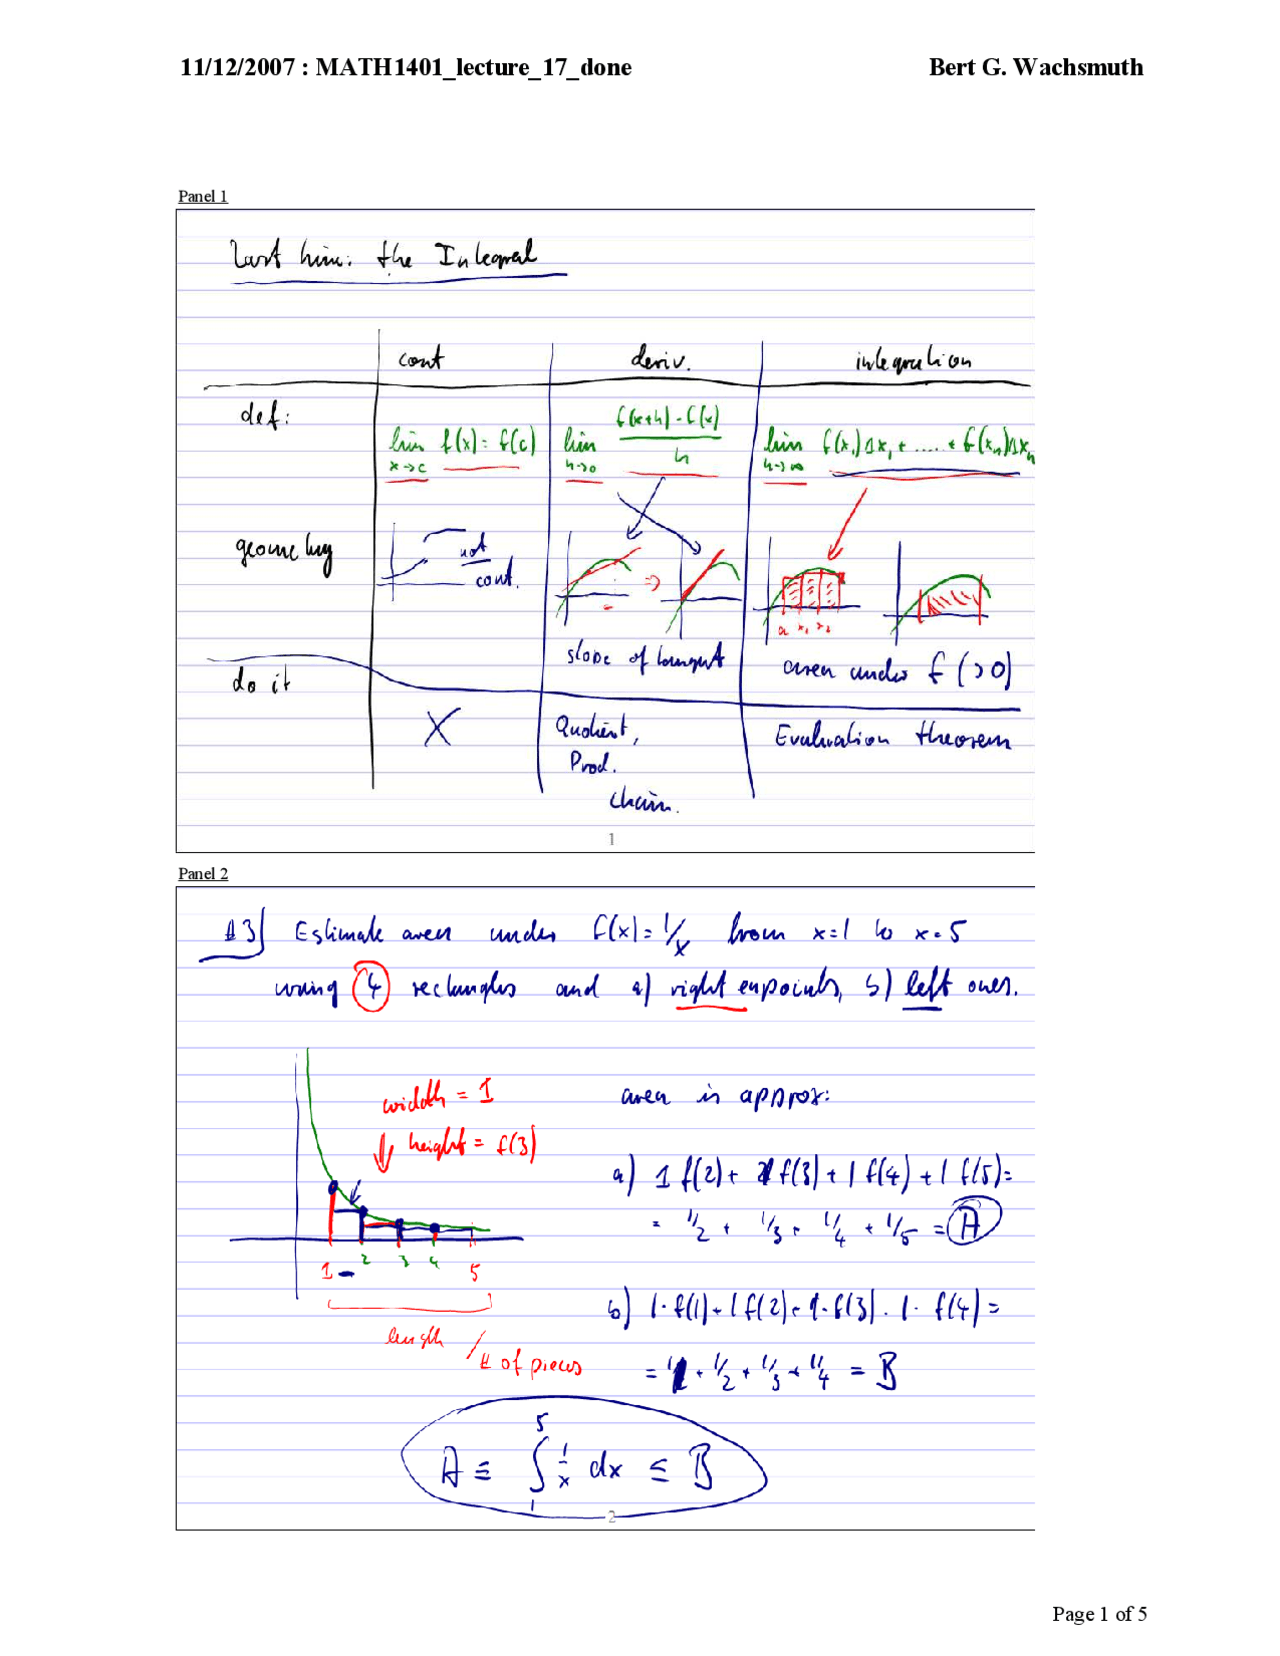 11/12/2007 : MATH1401_lecture_17_done Bert G. Wachsmuth
Panel 1
Last time: the Integral
cont deriv. integration
def:
lim x->c f(x) = f(c) lim h->0 f(x+h) - f(x) / h lim n->∞ f(x₁)Δx₁ + ..... + f(xₙ)Δxₙ
geometry
not
cont.
=>
a x₁ x₂
slope of tangent area under f (>0)
do it
X Quotient, Evaluation theorem
Prod.
chain.
1
Panel 2
#3) Estimate area under f(x) = 1/x from x=1 to x=5
using 4 rectangles and a) right enpoints, b) left ones.
width = 1 area is approx:
height = f(3)
a) 1 f(2) + 1 f(3) + 1 f(4) + 1 f(5) =
= 1/2 + 1/3 + 1/4 + 1/5 = A
1 2 3 4 5
b) 1· f(1) + 1 f(2) + 1· f(3) · 1· f(4) =
length / # of pieces
= 1/1 + 1/2 + 1/3 + 1/4 = B
A ≤ ∫₁⁵ 1/x dx ≤ B
2
Page 1 of 5